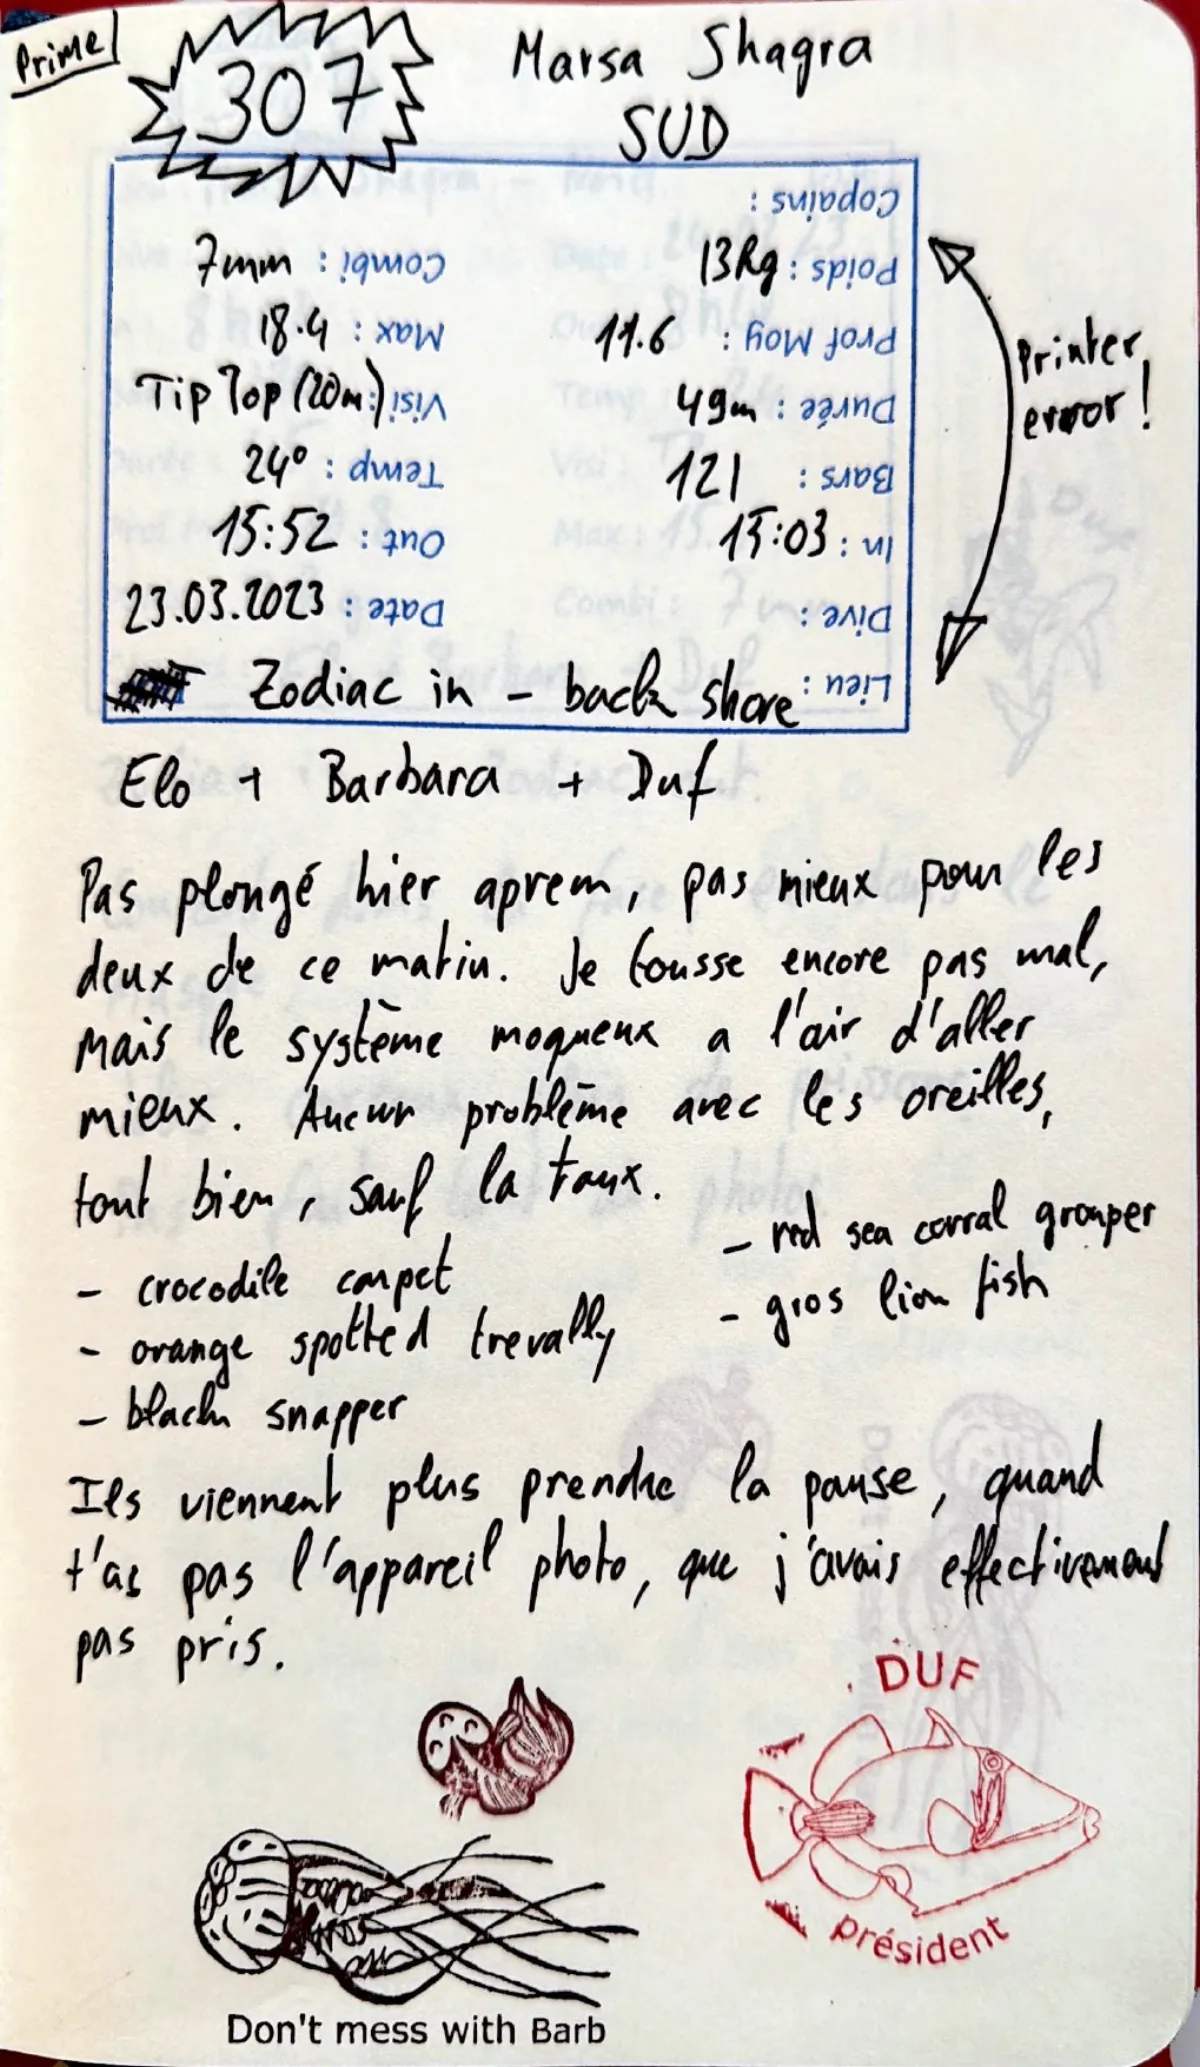 Prime!
307
Marsa Shagra
SUD
Copains :
7mm : Combi
13kg : Poids
18.4 : Max
11.6 : Prof Moy
Tip Top (20m) : Visi
49m : Durée
24° : Temp
121 : Bars
15:52 : Out
15:03 : In
23.03.2023 : Date
Dive :
Zodiac in - back shore : Lieu
Printer
error!
Elo + Barbara + Duf
Pas plongé hier aprem, pas mieux pour les
deux de ce matin. Je tousse encore pas mal,
mais le système moqueux a l'air d'aller
mieux. Aucun problème avec les oreilles,
tout bien, sauf la toux.
- crocodile carpet
- orange spotted trevally
- black snapper
- red sea corral grouper
- gros lion fish
Ils viennent plus prendre la pause, quand
t'as pas l'appareil photo, que j'avais effectivement
pas pris.
DUF
président
Don't mess with Barb